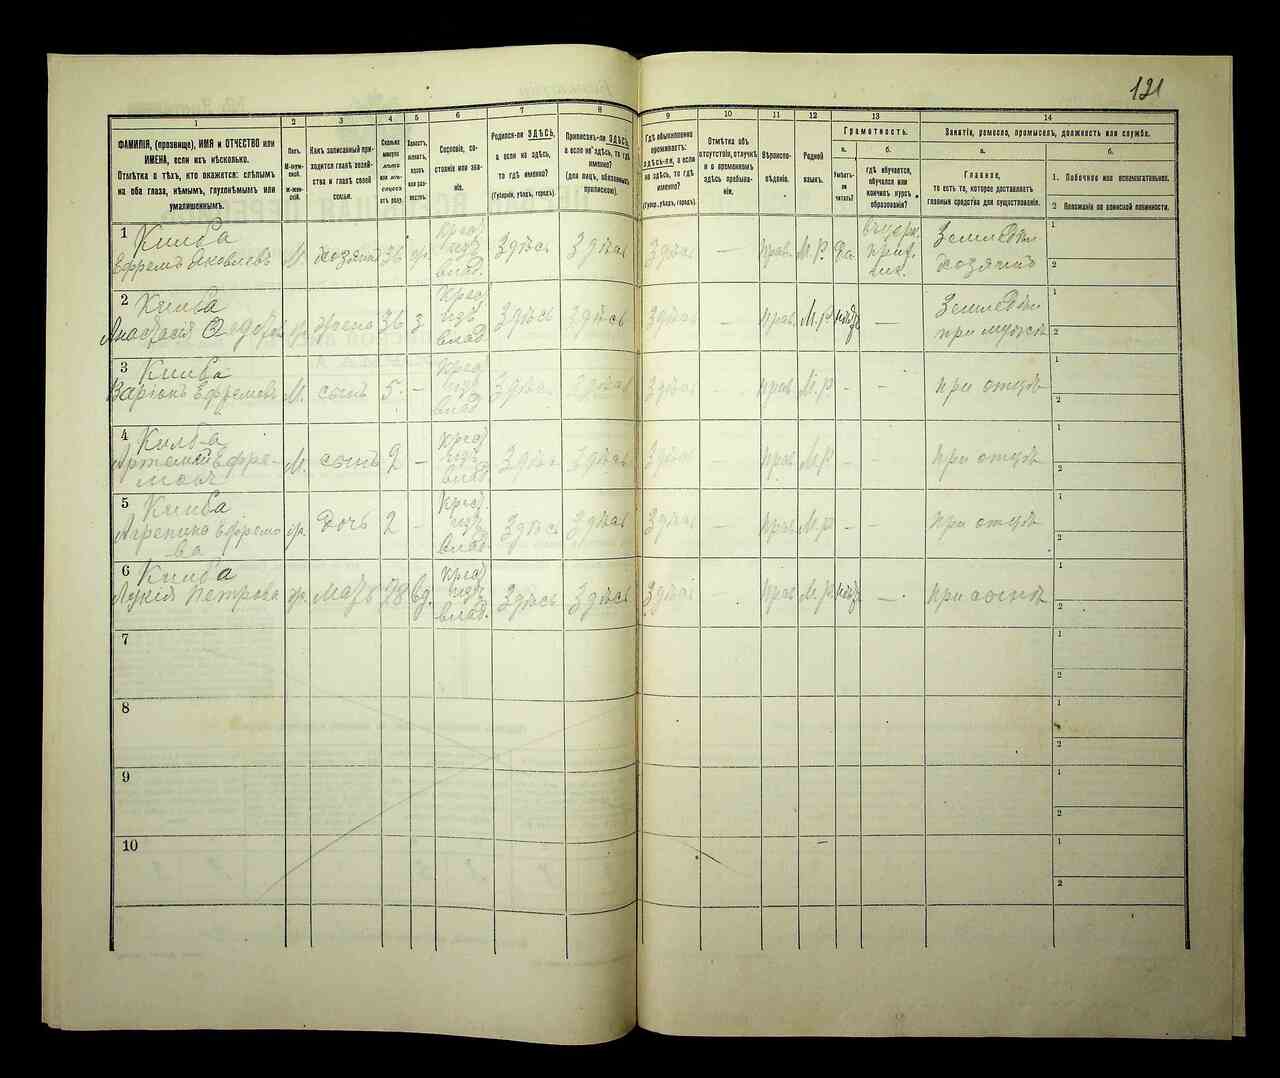 121
1
2
3
4
5
6
7
8
9
10
11
12
13
14
ФАМИЛІЯ, (прозвище), ИМЯ и ОТЧЕСТВО или
ИМЕНА, если ихъ нѣсколько.
Отмѣтка о тѣхъ, кто окажется: слѣпымъ
на оба глаза, нѣмымъ, глухонѣмымъ или
умалишеннымъ.
Полъ.
М-мужской.
Ж-женскій.
Какъ записанный при-
ходится главѣ хозяй-
ства и главѣ своей
семьи.
Сколько
минуло
лѣтъ
или мѣс-
яцевъ
отъ роду.
Холостъ,
женатъ,
вдовъ
или раз-
веденъ.
Сословіе, со-
стояніе или зва-
ніе.
Родился-ли ЗДѢСЬ,
а если не здѣсь,
то гдѣ именно?
(Губернія, уѣздъ, городъ).
Приписанъ-ли ЗДѢСЬ,
а если не здѣсь, то гдѣ
именно?
(для лицъ, обязанныхъ
припиской).
Гдѣ обыкновенно
проживаетъ:
здѣсь-ли, а если
не здѣсь, то гдѣ
именно?
(Губер., уѣздъ, городъ).
Отмѣтка объ
отсутствіи, отлучкѣ
и о временномъ
здѣсь пребыва-
ніи.
Вѣроиспо-
вѣданіе.
Родной
языкъ.
Грамотность.
а.
Умѣетъ-
ли
читать?
б.
гдѣ обучается,
обучался или
кончилъ курсъ
образованія?
Занятіе, ремесло, промыселъ, должность или служба.
а.
Главное,
то есть то, которое доставляетъ
главныя средства для существованія.
б.
1. Побочное или вспомогательное.
2. Положеніе по воинской повинности.
1 Килба
Ефремъ Яковлевъ М. хозяинъ 36 жр. Крест. изъ влад. Здѣсь Здѣсь Здѣсь — Прав. М.Р. Да Земледѣл. хозяинъ 1 2
2 Килба
Анастасія Федорова ж. жена 36 З Крест. изъ влад. Здѣсь Здѣсь Здѣсь — Прав. М.Р. нѣтъ — Земледѣл. при мужѣ 1 2
3 Килба
Ефремовъ М. сынъ 5 — Крест. изъ влад. Здѣсь Здѣсь Здѣсь — Прав. М.Р. — — при отцѣ 1 2
4 Килба
Артемій Ефре-
мовъ М. сынъ 9 — Крест. изъ влад. Здѣсь Здѣсь Здѣсь — Прав. М.Р. — — при отцѣ 1 2
5 Килба
Агрепина Ефремо
ва ж. дочь 2 — Крест. изъ влад. Здѣсь Здѣсь Здѣсь — Прав. М.Р. — — при отцѣ 1 2
6 Килба
Петрова ж. мать 78 вд. Крест. изъ влад. Здѣсь Здѣсь Здѣсь — Прав. М.Р. нѣтъ — при сынѣ 1 2
7 1 2
8 1 2
9 1 2
10 1 2